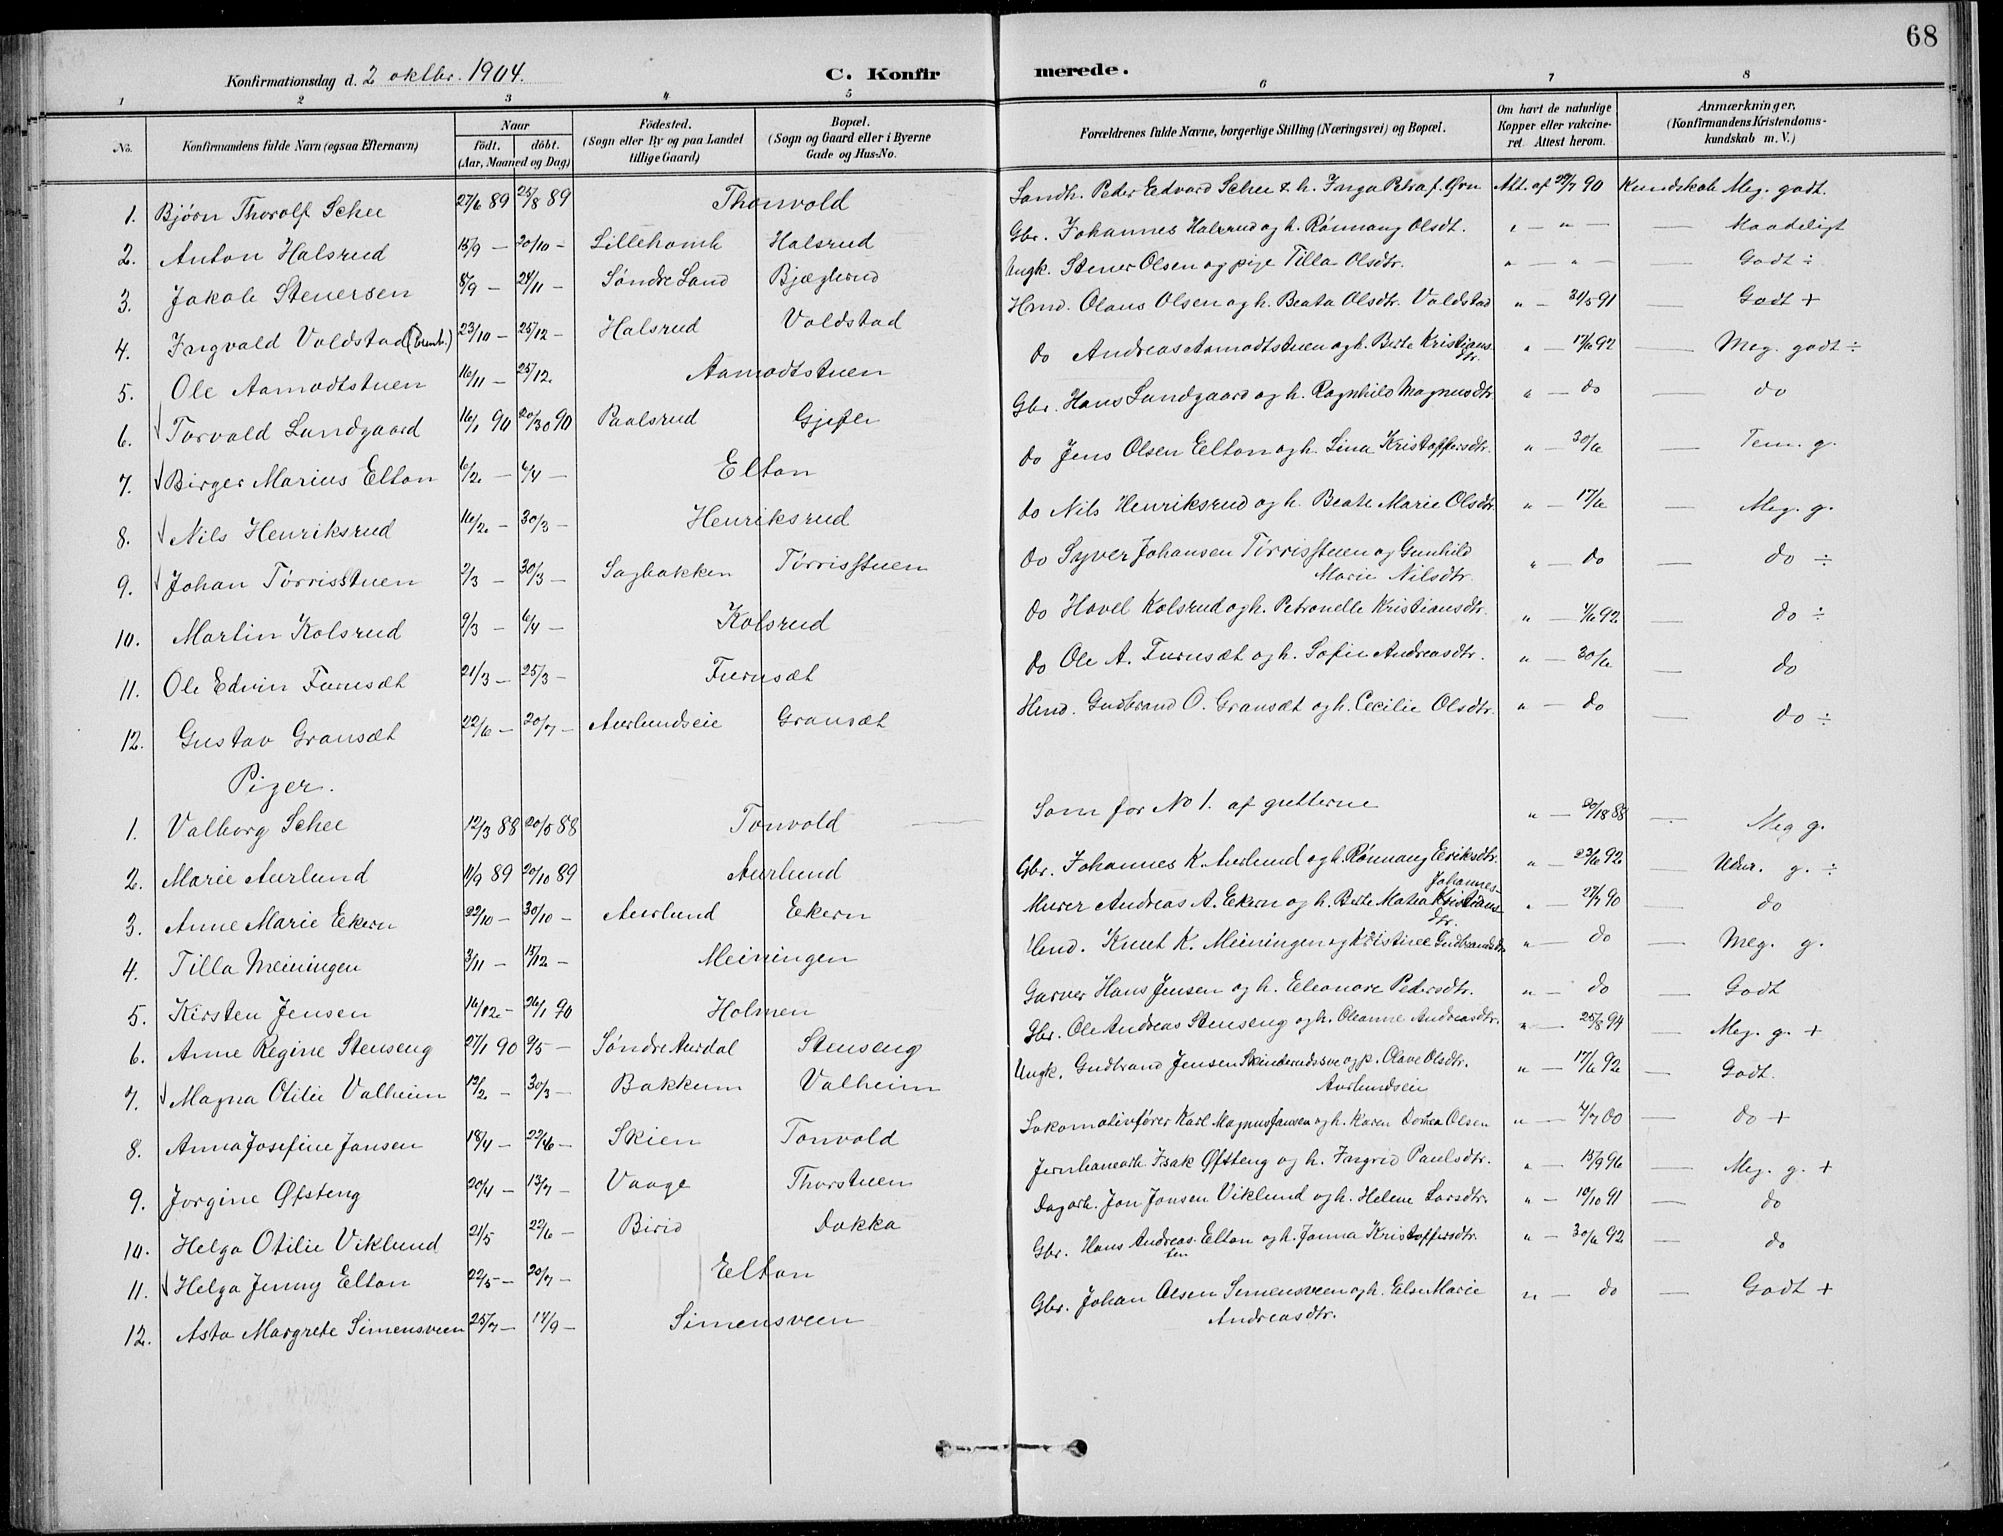 68
Konfirmationsdag d. 2 oktbr. 1904. C. Konfirmerede.
1 2 3 4 5 6 7 8
No. Konfirmandens fulde Navn (ogsaa Efternavn) Naar födt. döbt. (Aar, Maaned og Dag) Födested. (Sogn eller By og paa Landet tillige Gaard) Bopæl. (Sogn og Gaard eller i Byerne Gade og Hus-No. Forældrenes fulde Navne, borgerlige Stilling (Næringsvei) og Bopæl. Om havt de naturlige Kopper eller vakcineret. Attest herom. Anmærkninger. (Konfirmandens Kristendomskundskab m. V.)
1. Bjørn Thorolf Schee 27/6 89 25/8 89 Thonvold Landh. Peder Edvard Schee & h. Inga Petra f. Ørn Att. af 28/7 90 Kundskab Meg. godt.
2. Anton Halsrud 15/9 — 20/10 — Lillehamh Halsrud Gbr. Johannes Halsrud og h. Rønnaug Olsdt. " — " — — Maadeligt
3. Jakob Stenersen 8/9 — 24/11 — Søndre Land Bjæglerud Ungk. Stener Olsen og pige Tilla Olsdtr. " — " — — Godt ÷
4. Ingvald Voldstad 23/10 — 25/12 — Halsrud Voldstad Hmd. Olaus Olsen og h. Beata Olsdtr. Voldstad " — 31/5 91 — Godt +
5. Ole Aamodtstuen 16/11 — 25/12. Aamodtstuen do Andreas Aamodtstuen og h. Berte Kristiansdtr. " — 17/6 92 — Meg. godt ÷
6. Torvald Lundgaard 16/1 90 20/3 90 Paalsrud Gjefle Gbr. Hans Lundgaard og h. Ragnhild Magnusdtr " — do — do
7. Birger Marius Elton 6/2. — 6/4 — Elton do Jens Olsen Elton og h. Lina Kristoffersdtr. " — 30/6 — Tem. g.
8. Nils Henriksrud 16/2. — 30/3 — Henriksrud do Nils Henriksrud og h. Beate Marie Olsdtr " — 17/6 — Meg. g.
9. Johan Tørrisstuen 2/3 — 30/3 — Sagbakken Tørrisstuen do Syver Johansen Tørrisstuen og Gunhild Marie Nilsdtr. " — do — do ÷
10. Martin Kolsrud 9/3 — 6/4 — Kolsrud do Hovel Kolsrud og h. Petronelle Kristiansdtr. " — 92 — do ÷
11. Ole Edvin Furusæt 21/3 — 25/3 — Furusæt do Ole A. Furusæt og h. Sofie Andreasdtr. " — 30/6 — do
12. Gustav Gransæt 22/6 — 20/7 — Aurlundseie Gransæt Hmd. Gudbrand O. Gransæt og h. Cecilie Olsdtr. " — do — do ÷
Piger.
1. Valborg Schee 12/3 88 20/5 88 Tonvold Som for No 1. af gutterne " — 88 — Meg g.
2. Marie Aurlund 11/9 89 20/10 89 Aurlund Gbr. Johannes K. Aurlund og h. Rønnaug Eriksdtr. " — 23/6 92 — Udm. g. ÷
3. Anne Marie Ekern 22/10 — 30/10 — Aurlund Ekern Murer Andreas A. Ekern og h. Berte Matea Johannes- Kristiansdtr. " — 27/7 90 — do
4. Tilla Meiningen 3/11 — 15/12 — Meiningen Hmd. Knut K. Meiningen og Kristine Gudbrandsdtr " — do — Meg. g.
5. Kirsten Jensen 16/12. — 26/1 90 Holmen Garver Hans Jensen og h. Eleonore Pedersdtr. " — do — Godt
6. Anne Regine Stenseng 27/1 90 9/5 — Søndre Aurdal Stenseng Gbr. Ole Andreas Stenseng og h. Oleanne Andreasdtr. " — 25/8 94 — Meg. g. +
7. Magna Otilie Valheim 12/2 — 30/3 — Bakkum Valheim Ungk. Gudbrand Jensen og p. Olave Olsdtr. Aurlundseie " — 17/6 92 — Godt
8. Anna Josefine Jansen 18/4 — 22/6 — Skien Tonvold Lokomotivfører Karl Magnus Jansen og h. Karen Dortea Olsen " — 4/7 00 — do +
9. Jorgine Øfsteng 20/4 — 13/7 — Vaage Thorstuen Jernbanearb. Isak Øfsteng og h. Ingrid Paulsdtr. " — 15/9 96 — Meg. g. +
10. Helga Otilie Viklund 21/5 22/6 — Birid Dokka Dagarb. Jon Jonsen Viklund og h. Helene Larsdtr. " — 10/10 91 — do
11. Helga Jenny Elton 22/5 — 20/7 — Elton Gbr. Hans Andreasten Elton og h. Janna Kristoffersdtr. " — 30/6 92 — do
12. Asta Margrete Simensveen 25/7 — 14/9 — Simensveen Gbr. Johan Olsen Simensveen og h. Else Marie Andreasdtr. " — do — Godt +